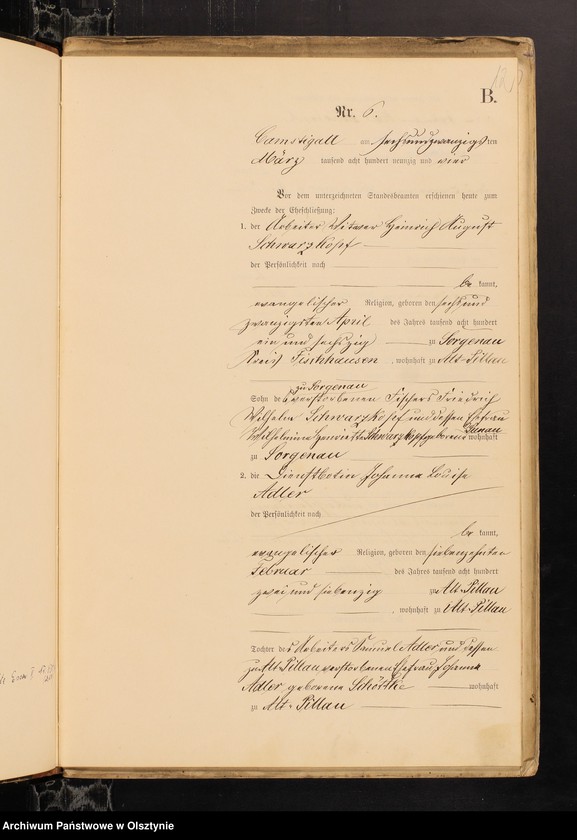 B.
Nr. 6.
Camstigall am sechsundzwanzigsten
März tausend acht hundert neunzig und vier
Vor dem unterzeichneten Standesbeamten erschienen heute zum
Zwecke der Eheschließung:
1. der Arbeiter, Witwer Heinrich August
Schwarzkopf
der Persönlichkeit nach
be kannt,
evangelischer Religion, geboren den sechsund
zwanzigsten April des Jahres tausend acht hundert
ein und sechszig zu Sorgenau
Kreis Fischhausen, wohnhaft zu Alt-Pillau
zu Sorgenau
Sohn des verstorbenen Fischers Friedrich
Wilhelm Schwarzkopf und dessen Ehefrau
Wilhelmine Henriette Schwarzkopf geborene wohnhaft
zu Sorgenau
2. die Dienstbotin Johanna Louise
Adler
der Persönlichkeit nach
be kannt,
evangelischer Religion, geboren den siebenzehnten
Februar des Jahres tausend acht hundert
zwei und siebenzig zu Alt-Pillau
, wohnhaft zu Alt-Pillau
Tochter des Arbeiters Samuel Adler und dessen
zu Alt-Pillau verstorbenen Ehefrau Johanna
Adler, geborene Schöttke wohnhaft
zu Alt-Pillau
Archiwum Państwowe w Olsztynie